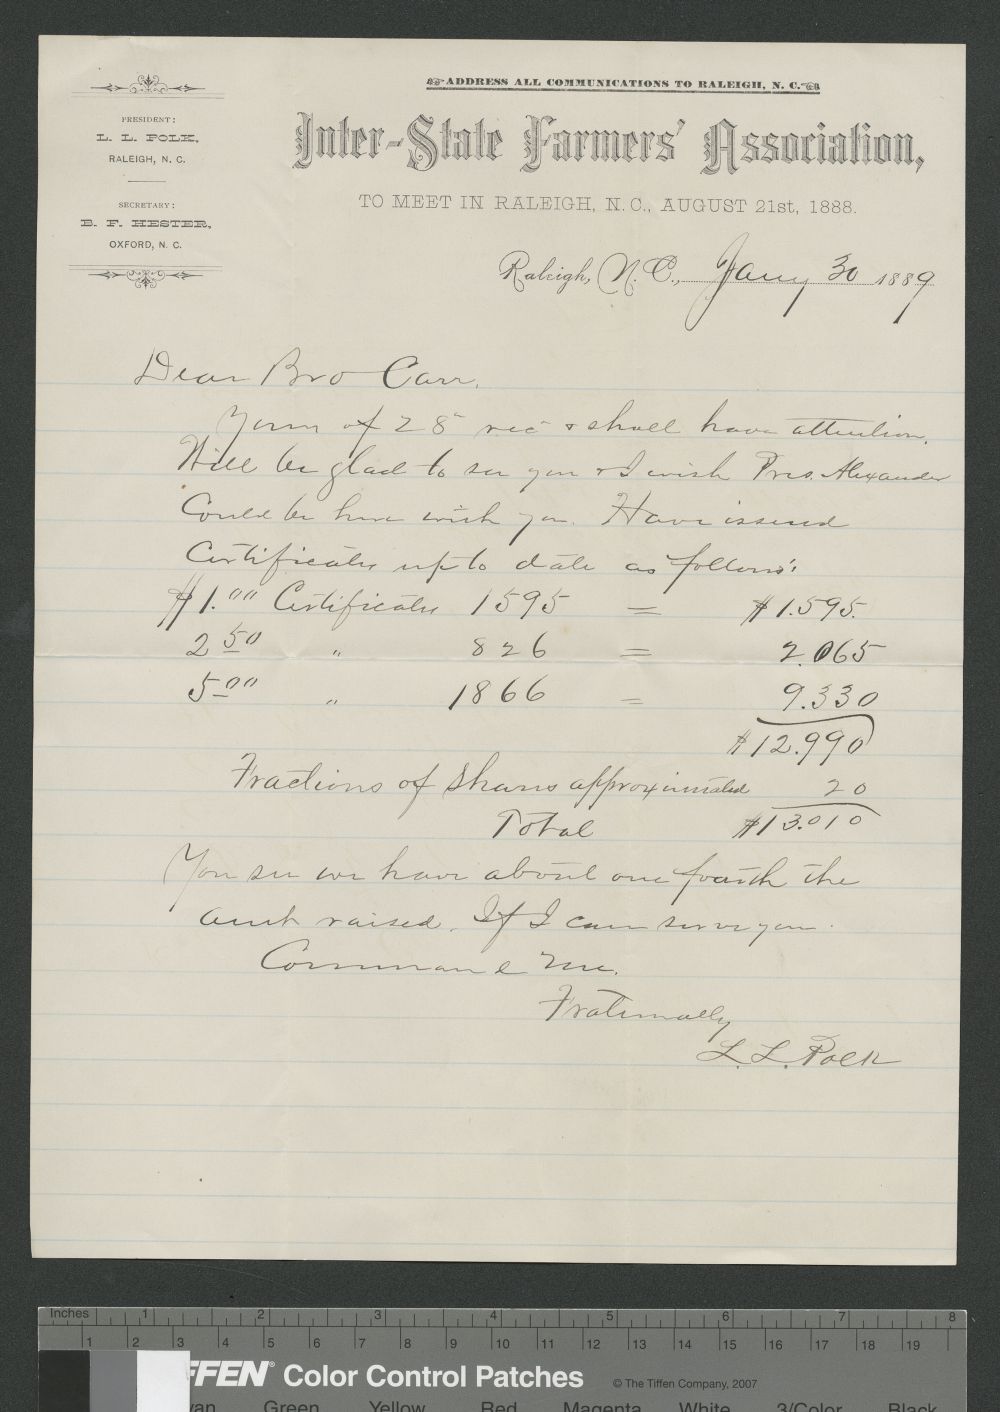 ADDRESS ALL COMMUNICATIONS TO RALEIGH, N. C.
PRESIDENT:
L. L. POLK,
RALEIGH, N. C.
SECRETARY:
B. F. HESTER,
OXFORD, N. C.
Inter-State Farmers' Association,
TO MEET IN RALEIGH, N. C., AUGUST 21st, 1888.
Raleigh, N. C., Jany 30 1889
Dear Bro Carr,
Yours of 28 rec & shall have attention.
Will be glad to see you & I wish Pres. Alexander
Could be here with you. Have issued
Certificates up to date as follows:
$1.00 Certificates 1595 = $1.595.
2 50 " 826 = 2.065
5 00 " 1866 = 9.330
$12.990
Fractions of Shares approximated 20
Total $13.010
You see we have about one fourth the
amt raised. If I can serve you.
Command me.
Fraternally
L. L. Polk
Inches 1 2 3 4 5 6 7 8
1 2 3 4 5 6 7 8 9 10 11 12 13 14 15 16 17 18 19
FFEN® Color Control Patches © The Tiffen Company, 2007
yan Green Yellow Red Magenta White 3/Color Black